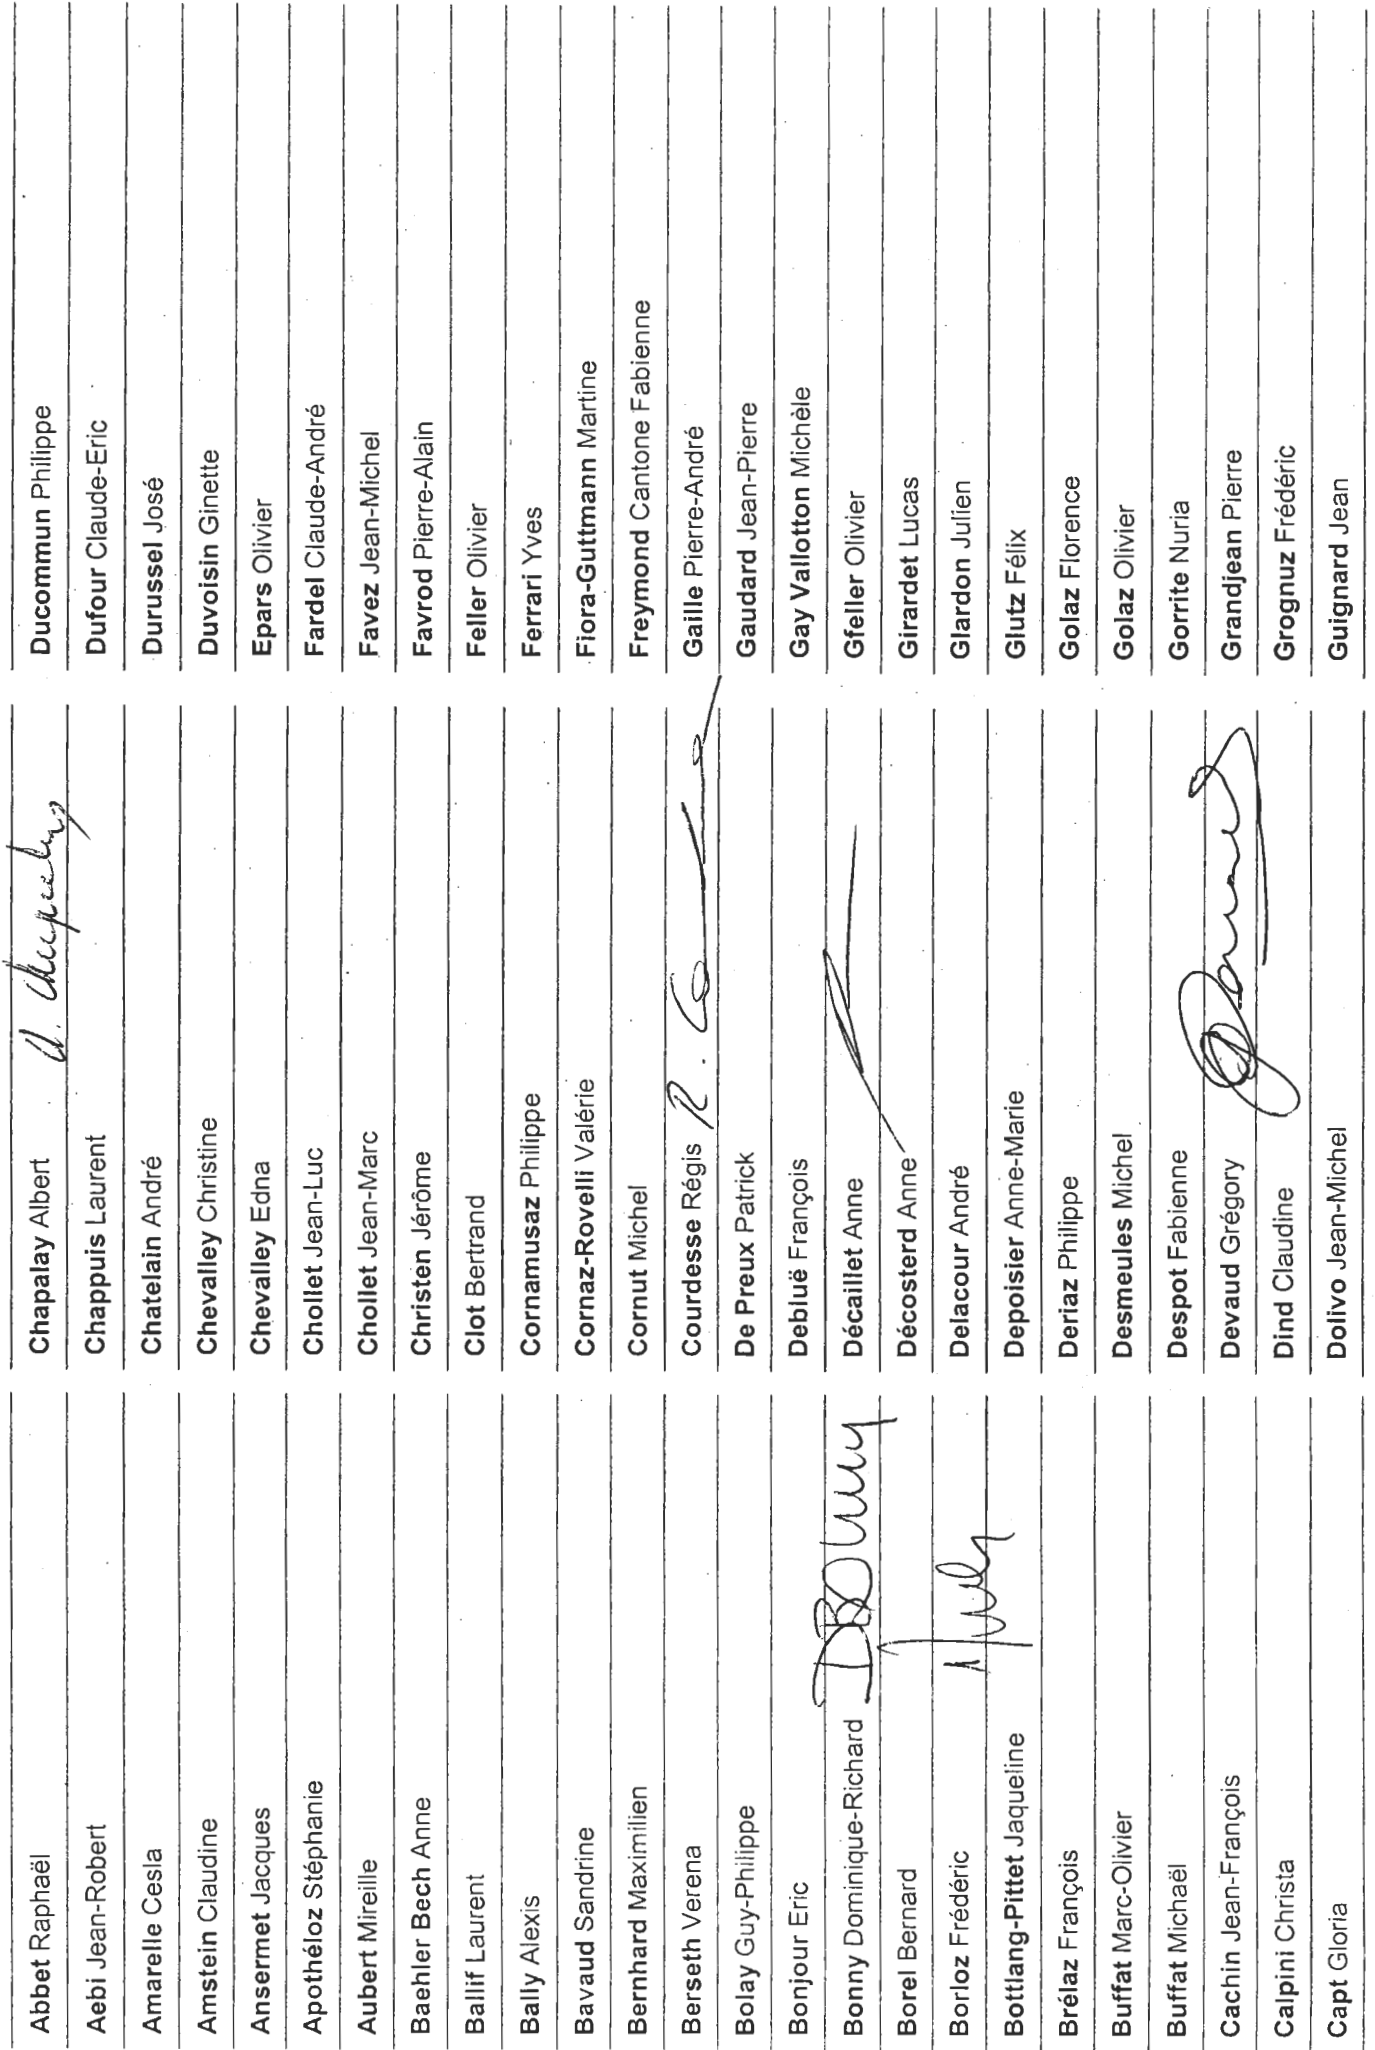 Abbet Raphaël
Aebi Jean-Robert
Amarelle Cesla
Amstein Claudine
Ansermet Jacques
Apothéloz Stéphanie
Aubert Mireille
Baehler Bech Anne
Ballif Laurent
Bally Alexis
Bavaud Sandrine
Bernhard Maximilien
Berseth Verena
Bolay Guy-Philippe
Bonjour Eric
Bonny Dominique-Richard DBonny
Borel Bernard
Borloz Frédéric
Bottlang-Pittet Jaqueline
Brélaz François
Buffat Marc-Olivier
Buffat Michaël
Cachin Jean-François
Calpini Christa
Capt Gloria
Chapalay Albert
Chappuis Laurent
Chatelain André
Chevalley Christine
Chevalley Edna
Chollet Jean-Luc
Chollet Jean-Marc
Christen Jérôme
Clot Bertrand
Cornamusaz Philippe
Cornaz-Rovelli Valérie
Cornut Michel
Courdesse Régis R. C
De Preux Patrick
Debluë François
Décaillet Anne
Décosterd Anne
Delacour André
Depoisier Anne-Marie
Deriaz Philippe
Desmeules Michel
Despot Fabienne
Devaud Grégory
Dind Claudine
Dolivo Jean-Michel
Ducommun Philippe
Dufour Claude-Eric
Durussel José
Duvoisin Ginette
Epars Olivier
Fardel Claude-André
Favez Jean-Michel
Favrod Pierre-Alain
Feller Olivier
Ferrari Yves
Fiora-Guttmann Martine
Freymond Cantone Fabienne
Gaille Pierre-André
Gaudard Jean-Pierre
Gay Vallotton Michèle
Gfeller Olivier
Girardet Lucas
Glardon Julien
Glutz Félix
Golaz Florence
Golaz Olivier
Gorrite Nuria
Grandjean Pierre
Grognuz Frédéric
Guignard Jean